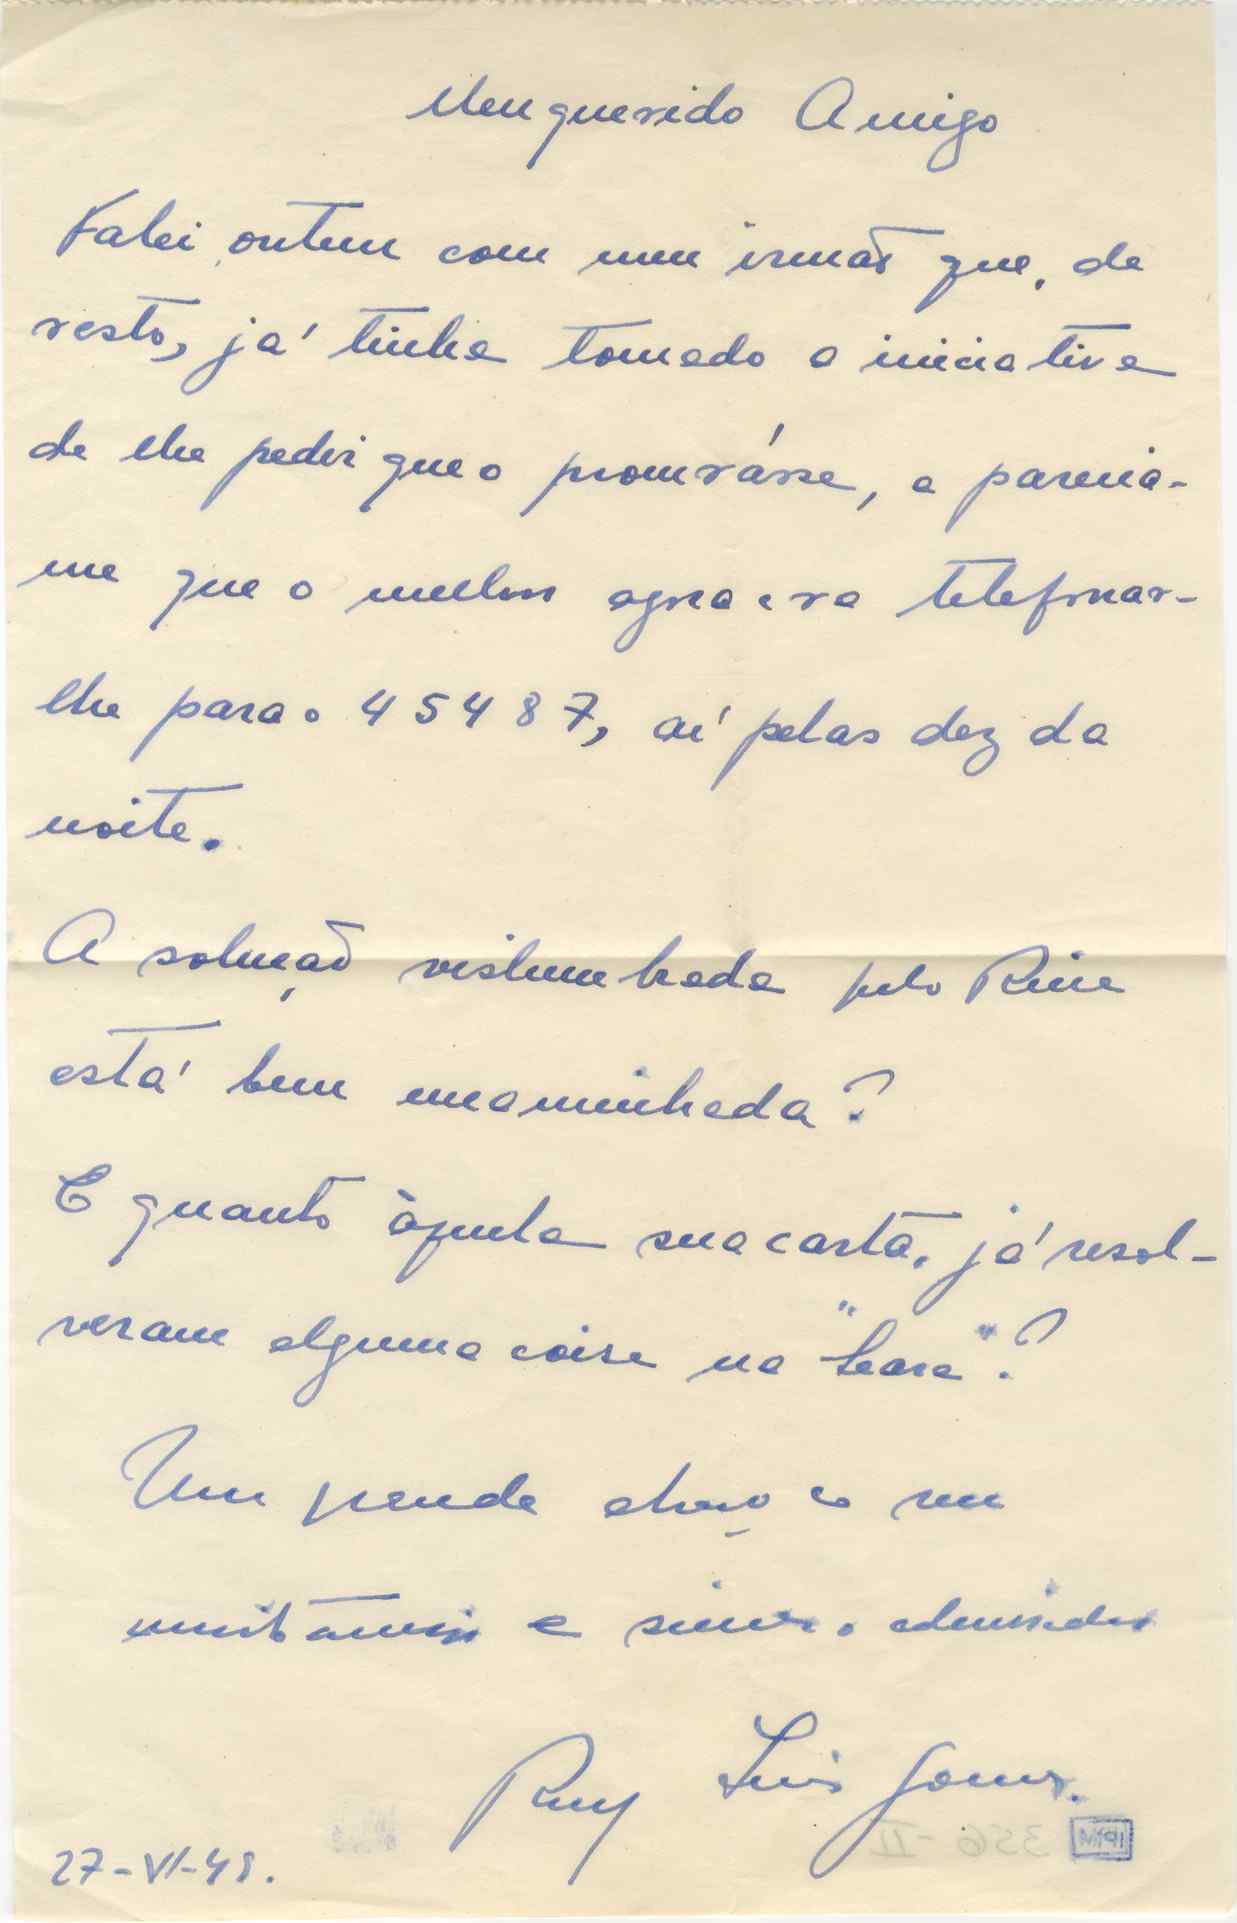 Meu querido Amigo
Falei ontem com meu irmão que, de
resto, já tinha tomado a iniciativa
de lhe pedir que o procurásse, e parecia-
me que o melhor agora era telefonar-
lhe para o 45487, aí pelas dez da
noite.
A solução vislumbrada pelo
está bem encaminhada?
E quanto àquela sua carta, já resol-
veram alguma coisa na "Seara"?
Um grande abraço do seu
muito amigo e sincero admirador
Ruy Luis Gomes.
27-VI-48.
356-II
IPM